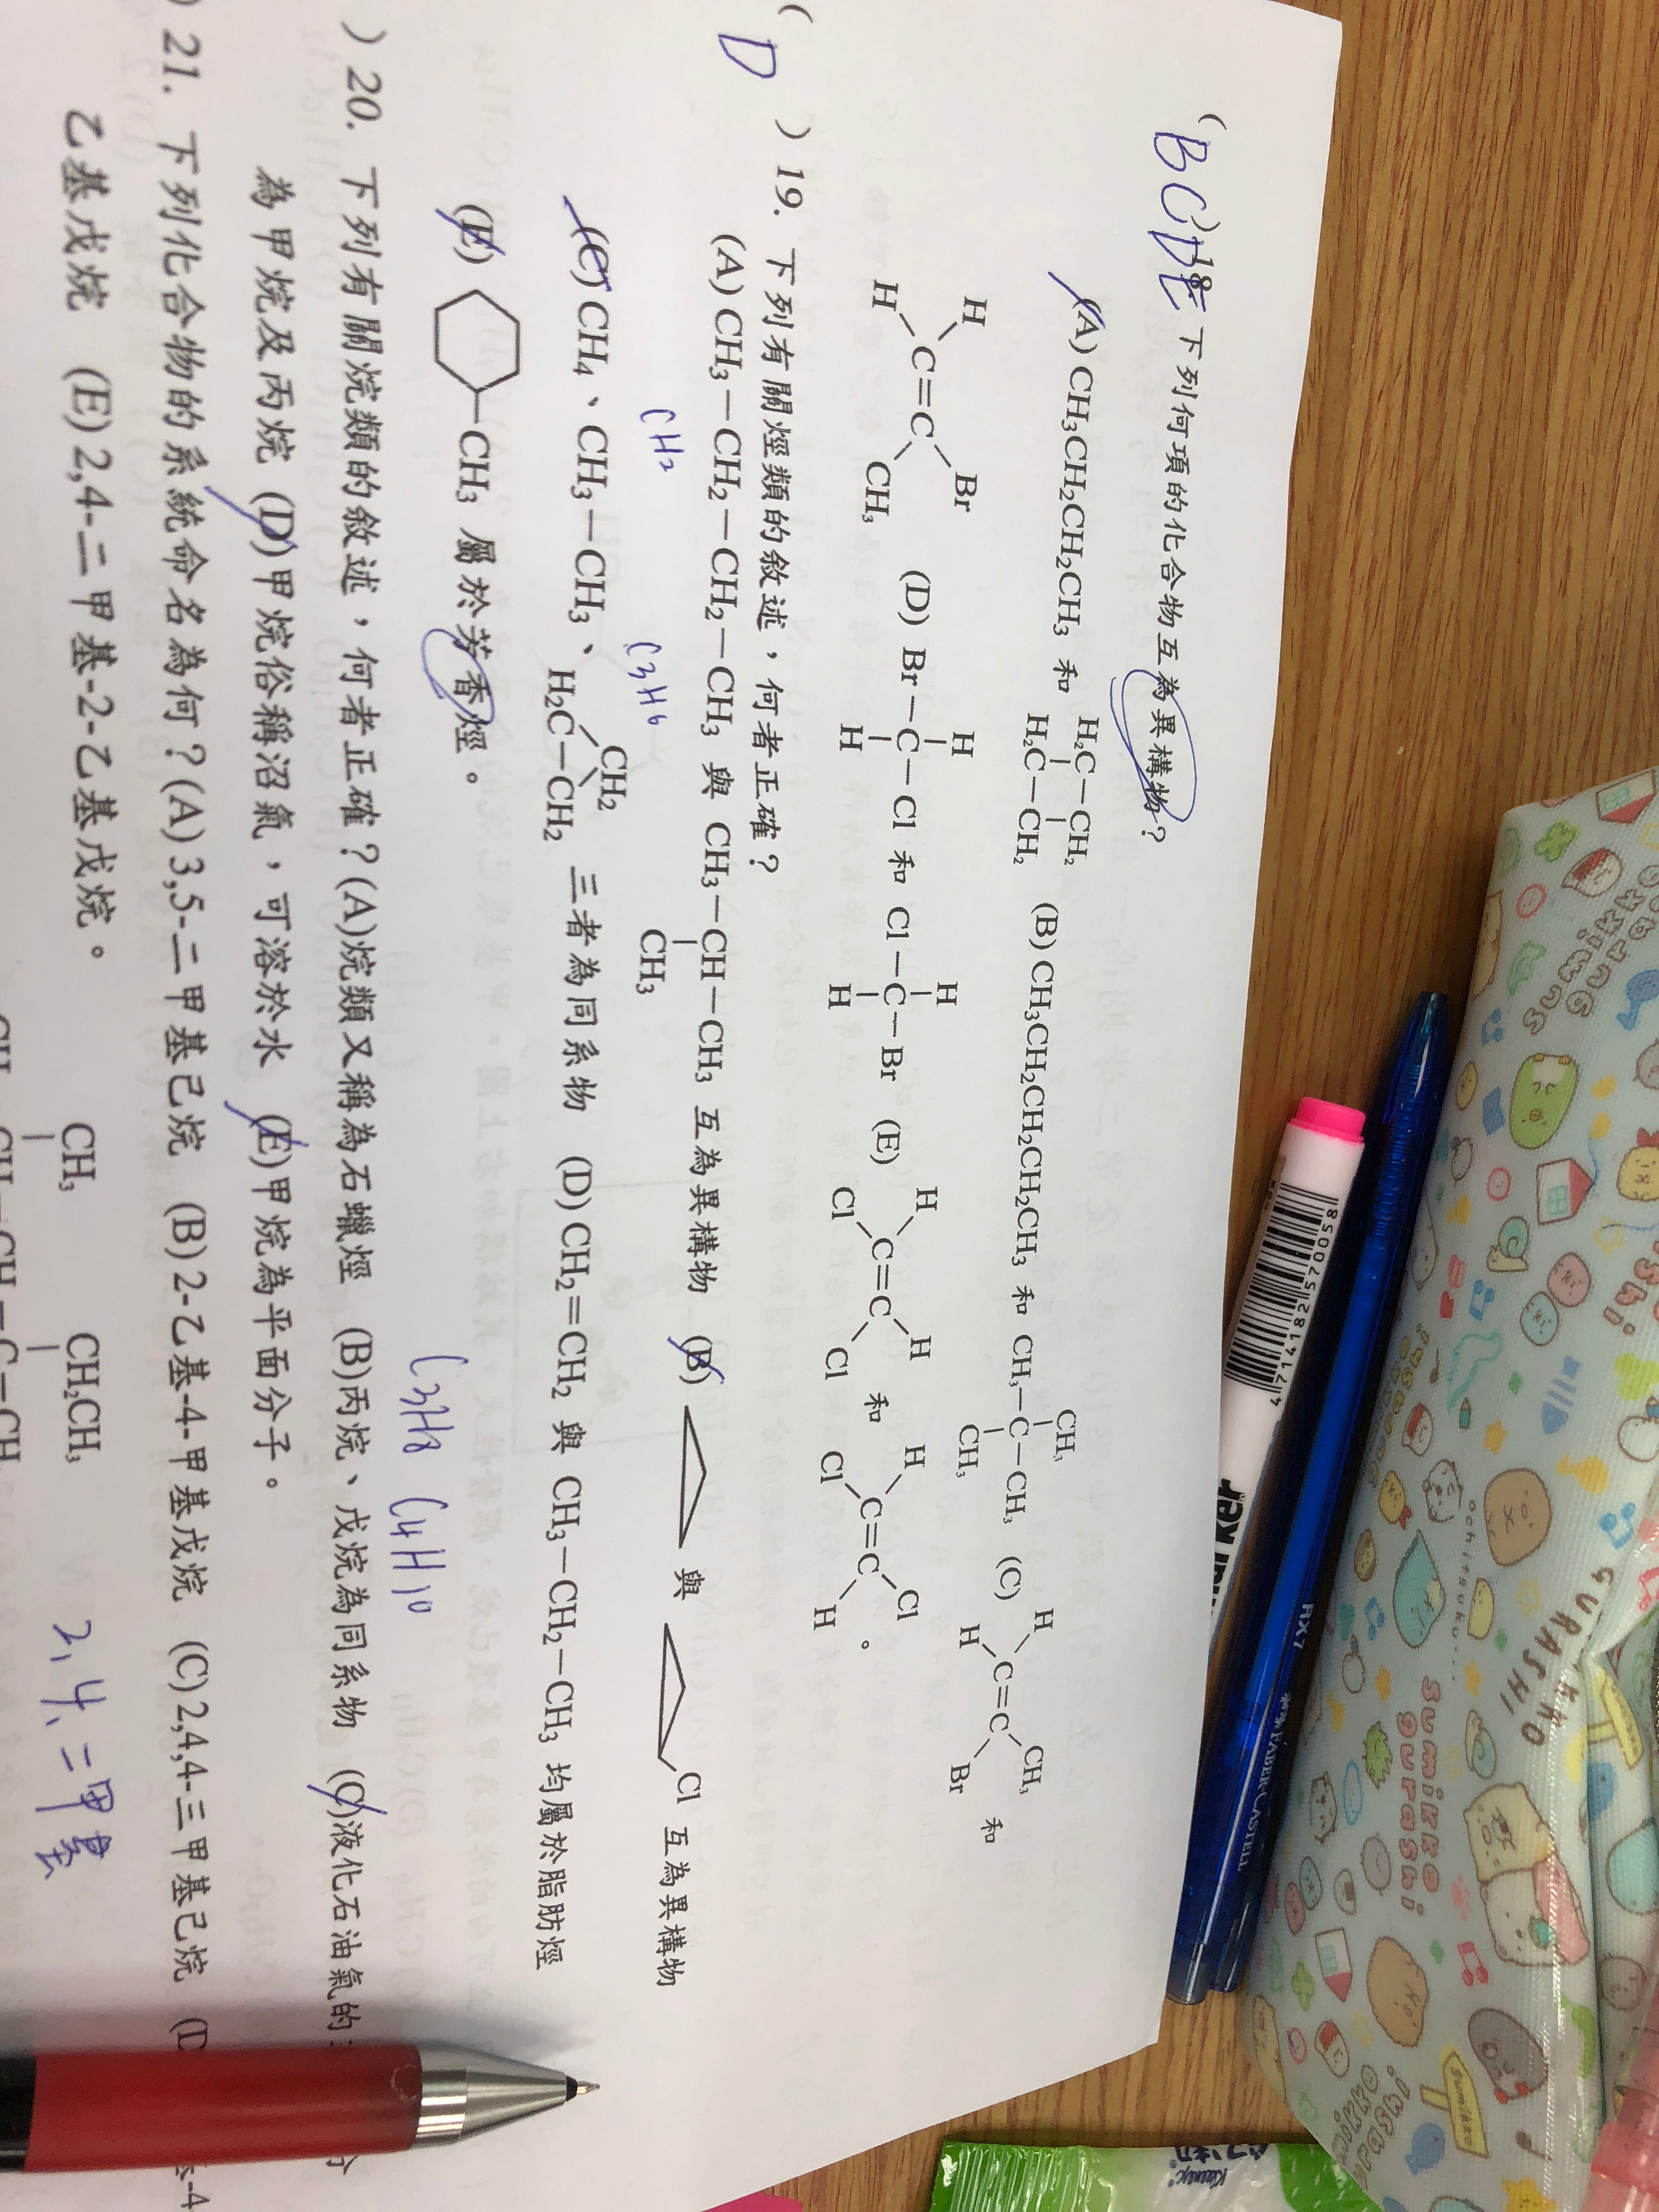 (BCDE)18. 下列何項的化合物互為異構物？
(A) CH₃CH₂CH₂CH₂CH₃ 和 H₂C—CH₂ H₂C—CH₂ (B) CH₃CH₂CH₂CH₂CH₂CH₃ 和 CH₃—C—CH₃ CH₃ CH₃ (C) H H C=C CH₃ Br 和
H H C=C Br CH₃ (D) Br—C—Cl H H 和 Cl—C—Br H H (E) H Cl C=C H Cl 和 H Cl C=C Cl H 。
( D ) 19. 下列有關烴類的敘述，何者正確？
(A) CH₃—CH₂—CH₂—CH₃ 與 CH₃—CH—CH₃ CH₃ 互為異構物 (B) 與 Cl 互為異構物
CH₂ C₃H₆
(C) CH₄、CH₃—CH₃、H₂C—CH₂ CH₂ 三者為同系物 (D) CH₂=CH₂ 與 CH₃—CH₂—CH₃ 均屬於脂肪烴
(E) CH₃ 屬於芳香烴。
C₃H₈ C₄H₁₀
) 20. 下列有關烷類的敘述，何者正確？(A)烷類又稱為石蠟烴 (B)丙烷、戊烷為同系物 (C)液化石油氣的
為甲烷及丙烷 (D)甲烷俗稱沼氣，可溶於水 (E)甲烷為平面分子。
) 21. 下列化合物的系統命名為何？(A) 3,5-二甲基己烷 (B) 2-乙基-4-甲基戊烷 (C) 2,4,4-三甲基己烷 (D
乙基戊烷 (E) 2,4-二甲基-2-乙基戊烷。
CH₃ CH₂CH₃
2,4,二甲基
4714182570058
RX7
FABER-CASTELL
sumikko gurashi
Kleenex